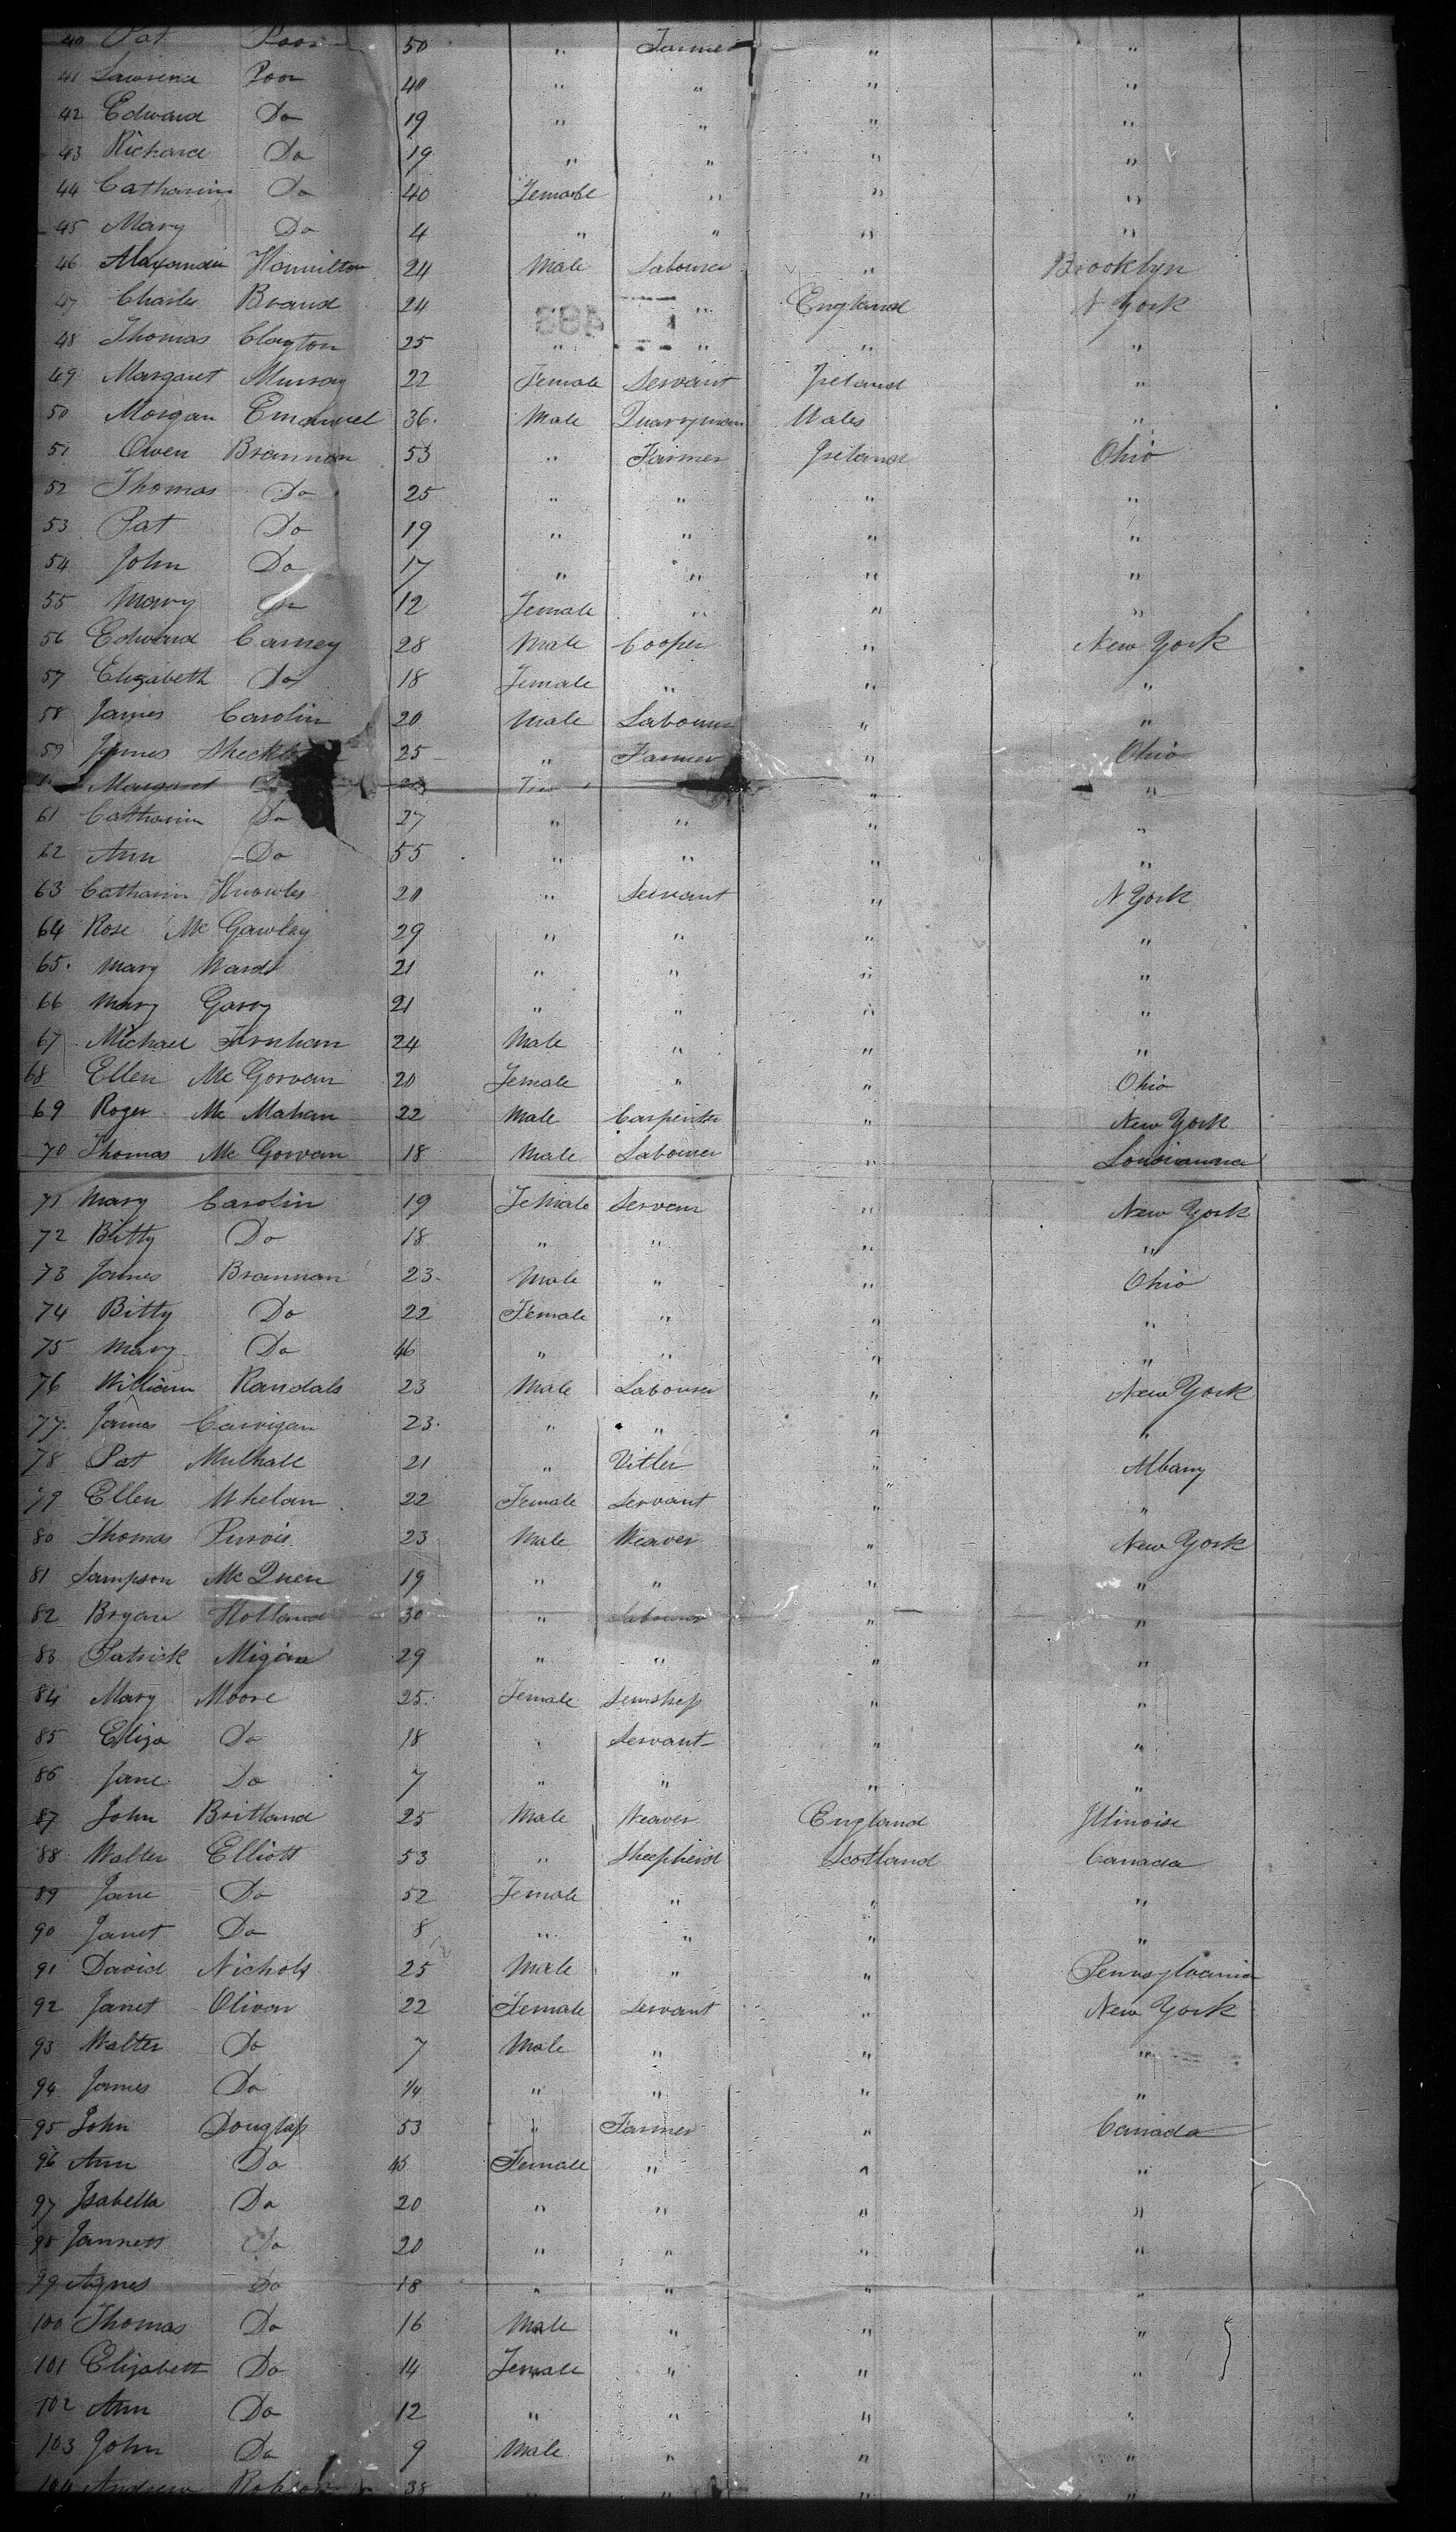 40 Pat Poor 50 " Farmer " "
41 Lawrence Poor 40 " " " "
42 Edward Do 19 " " " "
43 Richard Do 19 " " " "
44 Catharin Do 40 Female " " "
45 Mary Do 4 " " " "
46 Alexander Hamilton 24 Male Labourer " Brooklyn
47 Charles Brand 24 " England N York
48 Thomas Clayton 25 " " " "
49 Margaret Murray 22 Female Servant Ireland "
50 Morgan Emanuel 36. Male Quarryman Wales "
51 Owen Brannan 53 " Farmer Ireland Ohio
52 Thomas Do 25 " " " "
53 Pat Do 19 " " " "
54 John Do 17 " " " "
55 Mary Do 12 Female " " "
56 Edward Carney 28 Male Cooper " New York
57 Elizabeth Do 18 Female " " "
58 James Carolin 20 Male Labourer " "
59 James 25 " Farmer " Ohio
Margaret " "
61 Catharin Do 27 " " " "
62 Ann Do 55 " " " "
63 Catharin Knowles 20 " Servant " N York
64 Rose Mc Gawley 29 " " " "
65. Mary Ward 21 " " " "
66 Mary Garry 21 " " " "
67 Michael 24 Male " " "
68 Ellen Mc Gorvan 20 Female " " Ohio
69 Roger Mc Mahan 22 Male Carpenter " New York
70 Thomas Mc Gorvan 18 Male Labourer " Louisianna
71 Mary Carolin 19 Female Servan " New York
72 Bitty Do 18 " " " "
73 James Brannan 23 Male " " Ohio
74 Bitty Do 22 Female " " "
75 Mary Do 46 " " " "
76 William Randals 23 Male Labourer " New York
77. James Carrigan 23. " " " "
78 Pat Mulhall 21 " Vitler " Albany
79 Ellen Whelan 22 Female Servant " "
80 Thomas Purvis 23 Male Weaver " New York
81 Sampson Mc Quen 19 " " " "
82 Bryan Holland 30 " Labourer " "
83 Patrick Migan 29 " " " "
84 Mary Moore 25. Female " "
85 Eliza Do 18 " Servant " "
86 Jane Do 7 " " " "
87 John Britland 25 Male Weaver England Illinoise
88 Walter Elliott 53 " Sheepherd Scotland Canada
89 Jane Do 52 Female " " "
90 Janet Do 8 " " " "
91 David Nichols 25 Male " " Pennsylvania
92 Janet Olivar 22 Female Servant " New York
93 Walter Do 7 Male " " "
94 James Do 1/4 " " " "
95 John Douglass 53 " Farmer " Canada
96 Ann Do 45 Female " " "
97 Isabella Do 20 " " " "
98 Jannett Do 20 " " " "
99 Agnes Do 18 " " " "
100 Thomas Do 16 Male " " "
101 Elizabeth Do 14 Female " " "
102 Ann Do 12 " " " "
103 John Do 9 Male " " "
104 Andrew Robson 38 " " " "